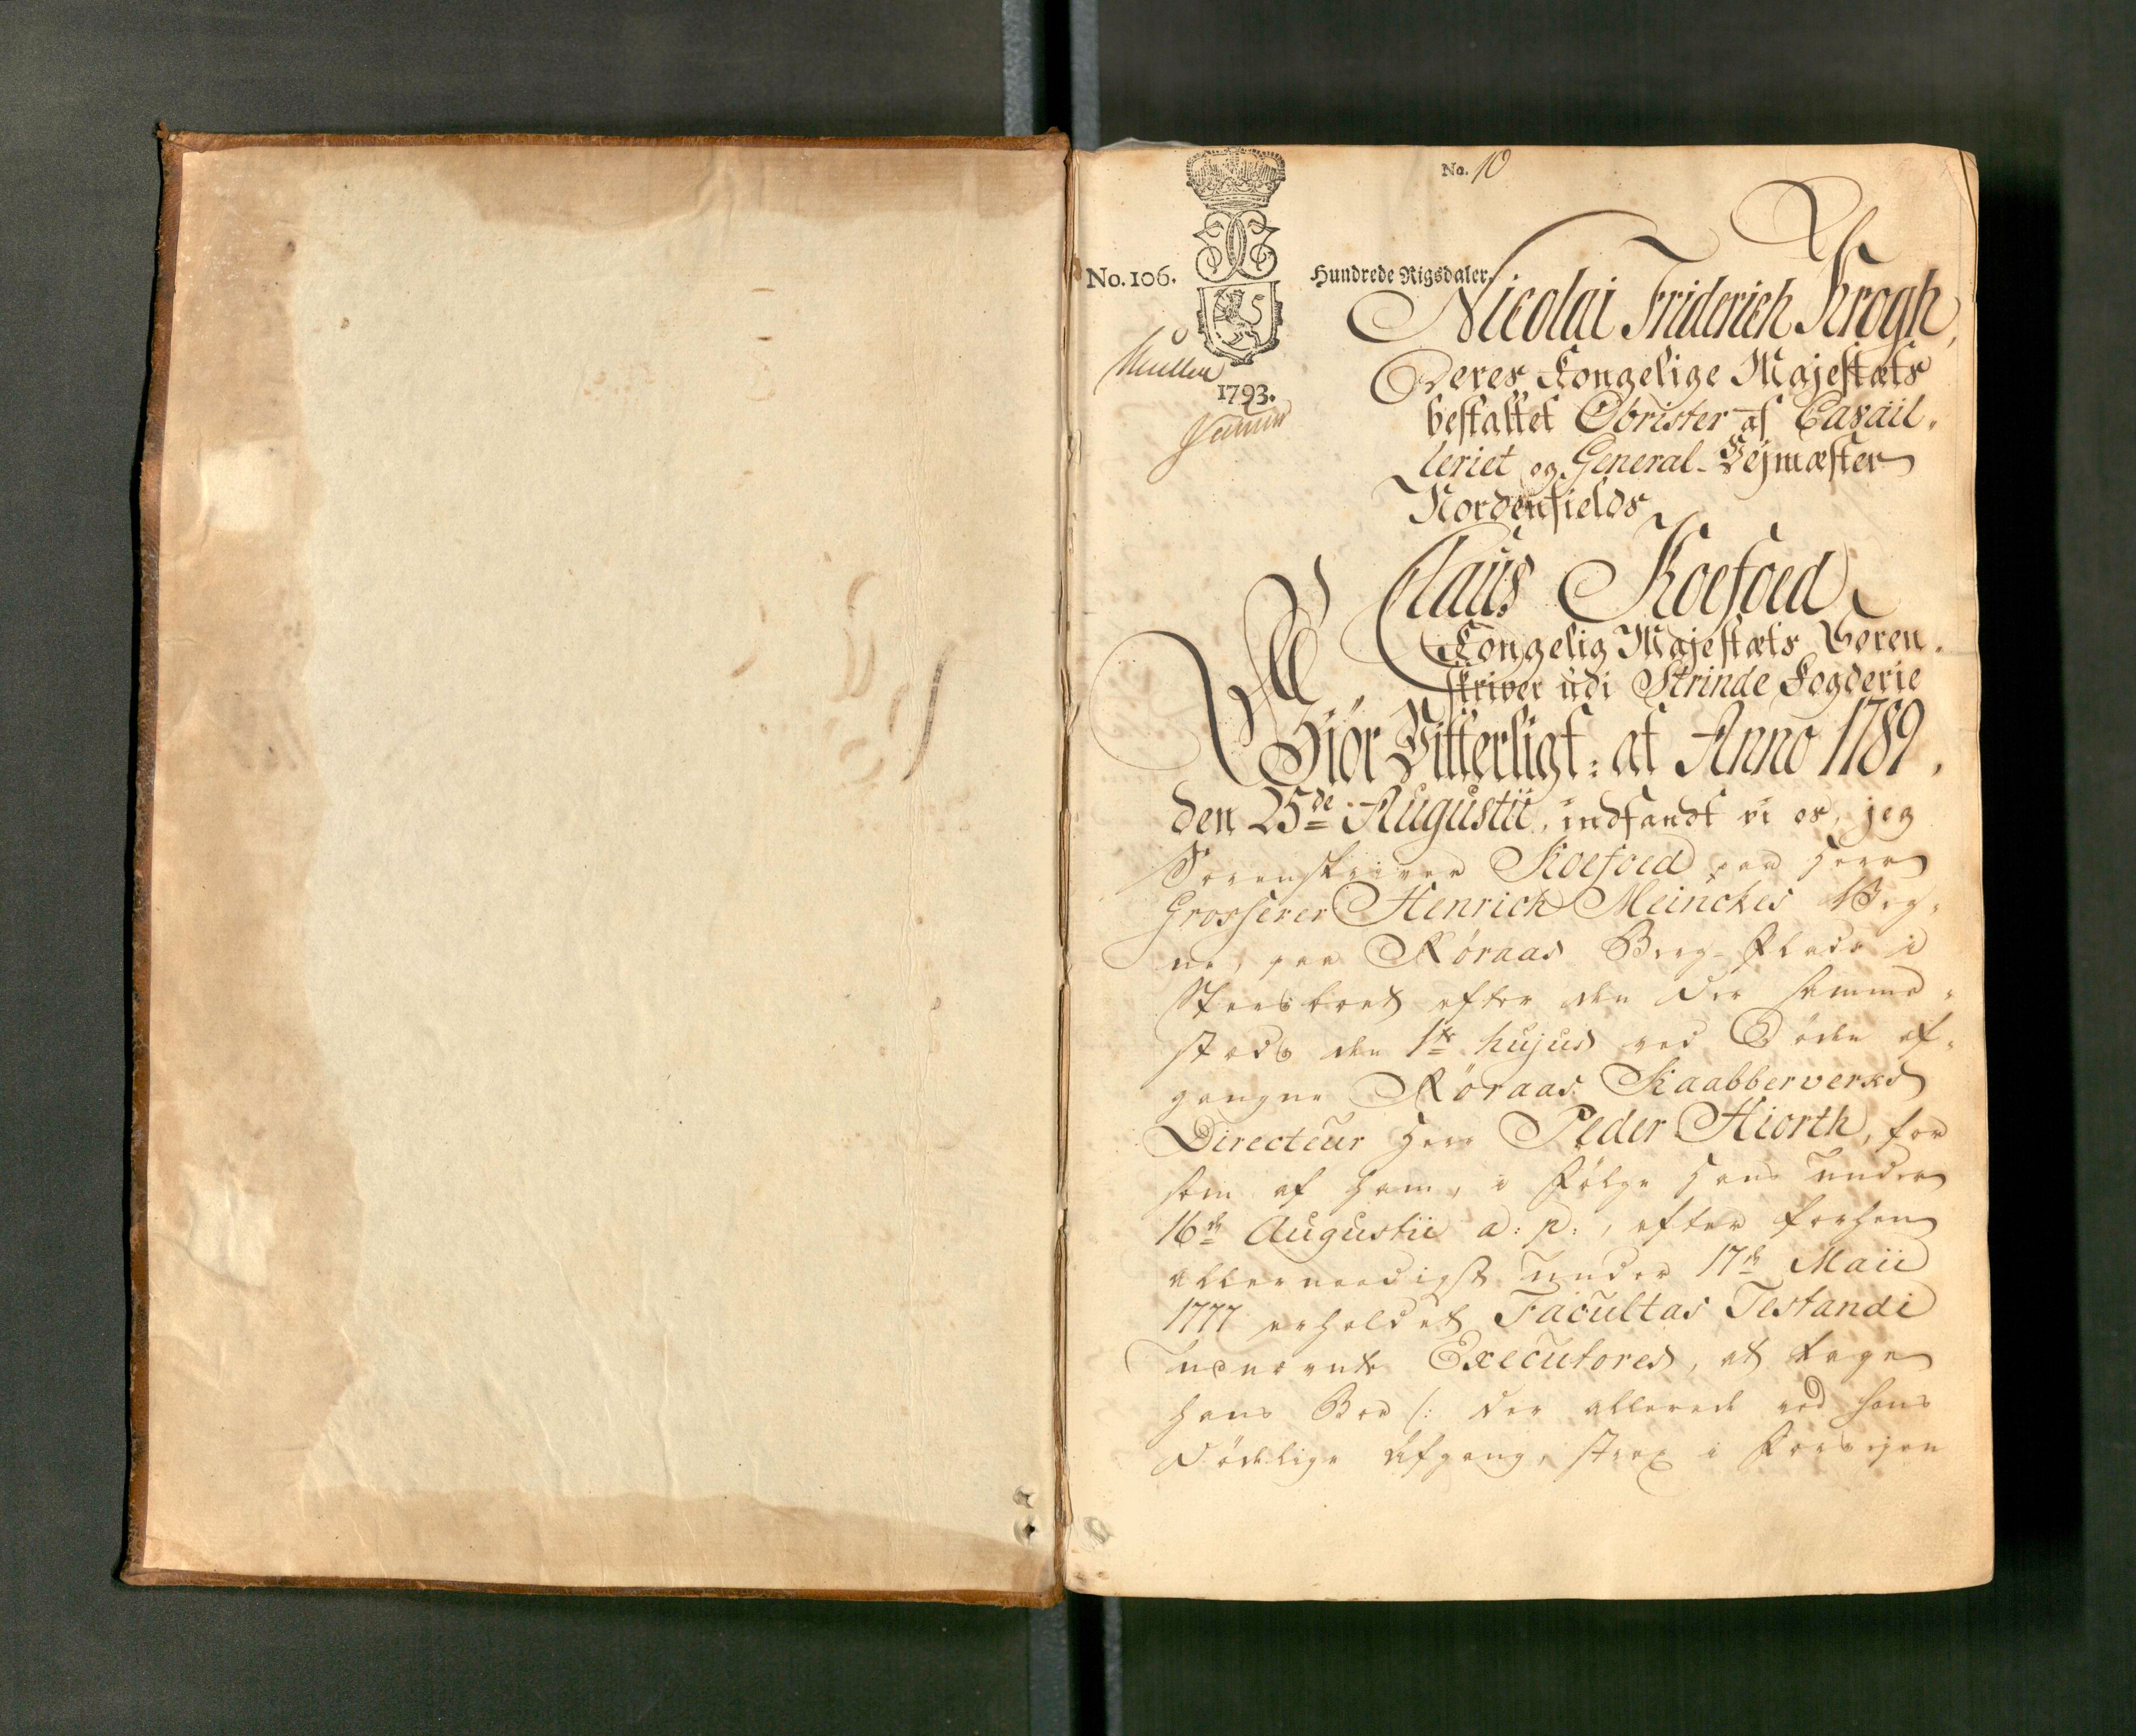 No. 10
No. 106.
Hundrede Rigsdaler
Müller
1793.
Nicolai Friderich Krogh,
Deres Kongelige Majestæts
bestaltet Obrister af Cavail-
leriet og General-Vejmæster
Nordenfields
Claus Koefoed
Kongelig Majestæts Soren-
skriver udi Strinde Fogderie
Giör Vitterligt: at Anno 1789.
den 25de Augustii, indfandt vi os, jeg
Sorenskriver Koefoed paa Herr
Grosserer Henrich Meinckes Veg-
ne, paa Røraas Berg-Stads i
Sterboet efter den der samme-
steds den 1te hujus ved Døden af-
gangne Røraas Kaabberverks
Directeur Herr Peder Hiorth, for
som af ham, i Følge Hans under
16de Augustii a: p:, efter forhen
allernaadigst under 17de Maii
1777 erholdet Facultas Testandi
udnævnte Executores, at tage
hans Boe /: der allerede ved hans
Dødelige Afgang, strax i Forsejen